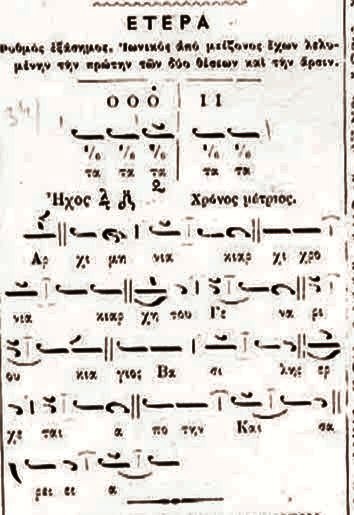 ΕΤΕΡΑ
Ῥυθμὸς ἑξάσημος. Ἰωνικὸς ἀπὸ μείζονος ἔχων λελυ-
μένην τὴν πρώτην τῶν δύο θέσεων καὶ τὴν ἄρσιν.
Ο Ο Ο Ι Ι
1/6 1/6 1/6 1/6 1/6
τα τα τα τα τα
Ἦχος Χρόνος μέτριος.
Αρ χι μη νια κιαρ χι χρο
νια κιαρ χη του Γε να ρι
ου κια γιος Βα σι λης ερ
χε ται α πο την Και σα
ρει ει α